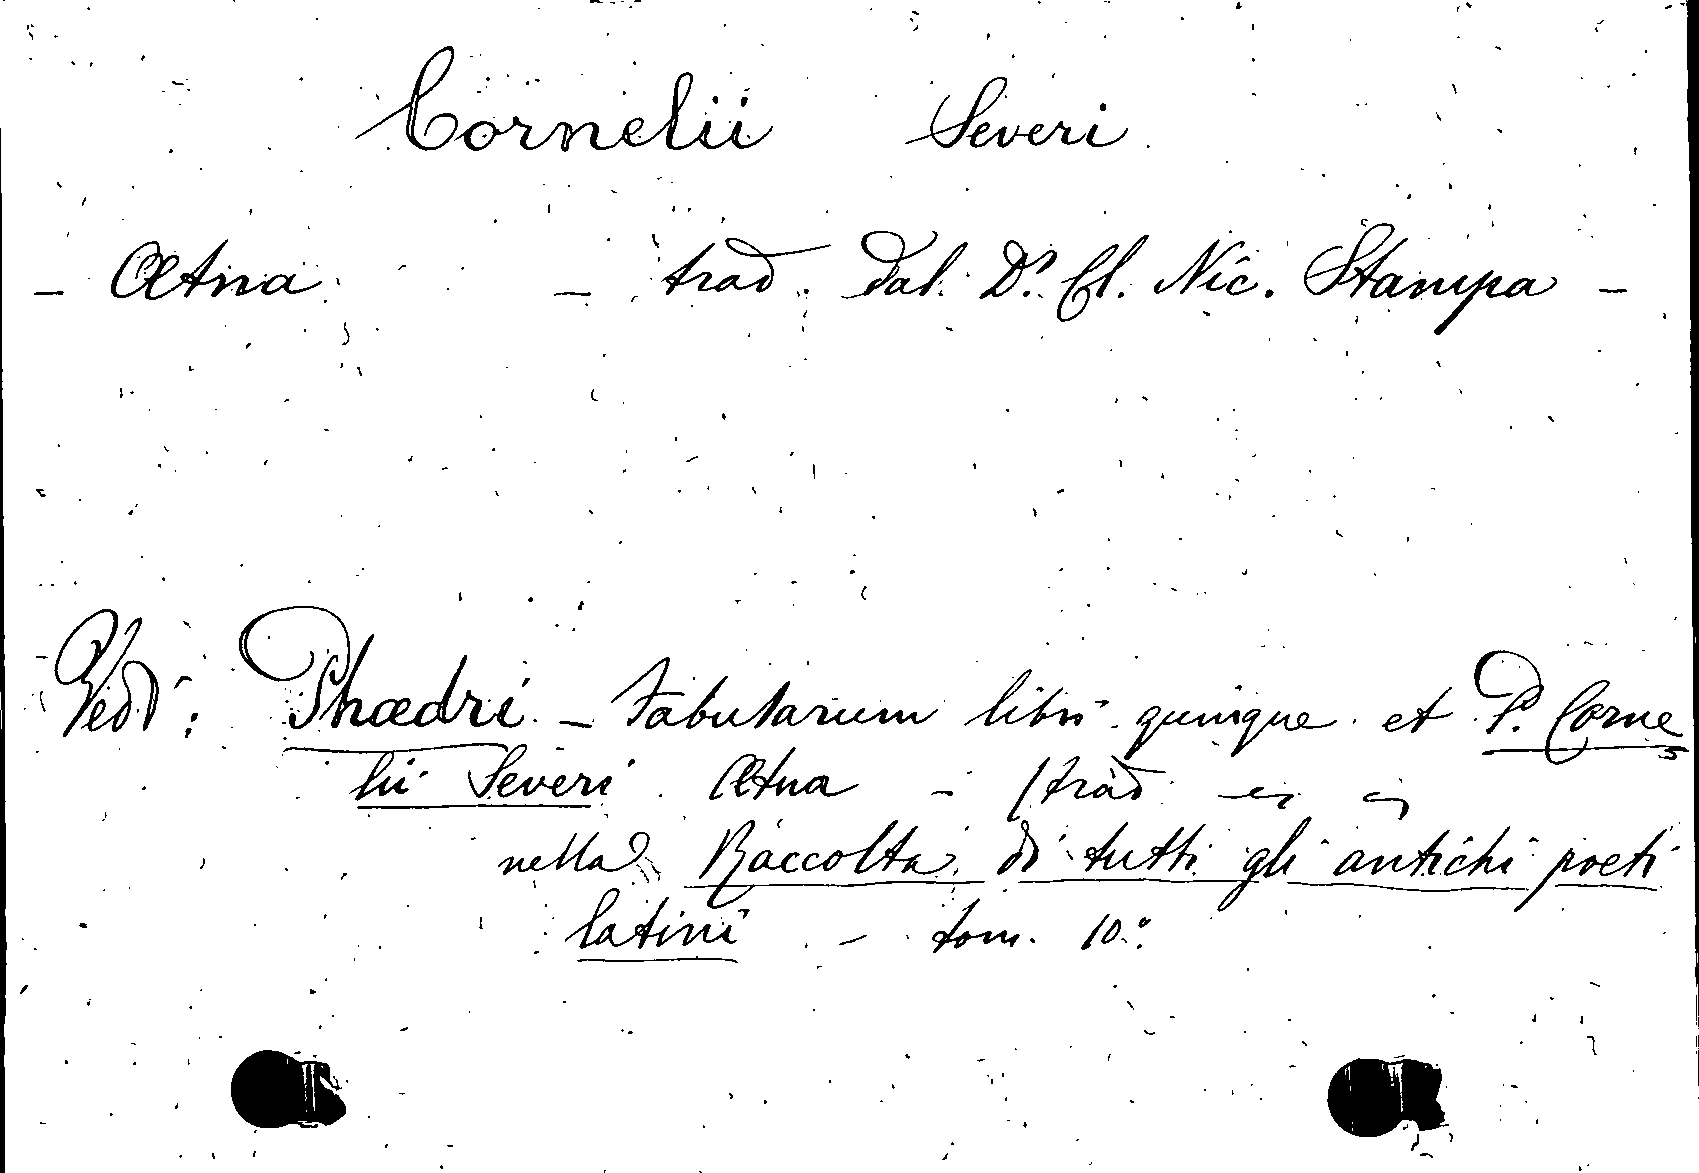 Cornelii Severi
- Ætna - trad. dal Dr. Cl. Nic. Stampa -
Vedi: Phædri - Fabularum libri quinque et P. Corne
lii Severi Ætna - (trad
nella Raccolta di tutti gli antichi poeti
latini - tom. 10.º